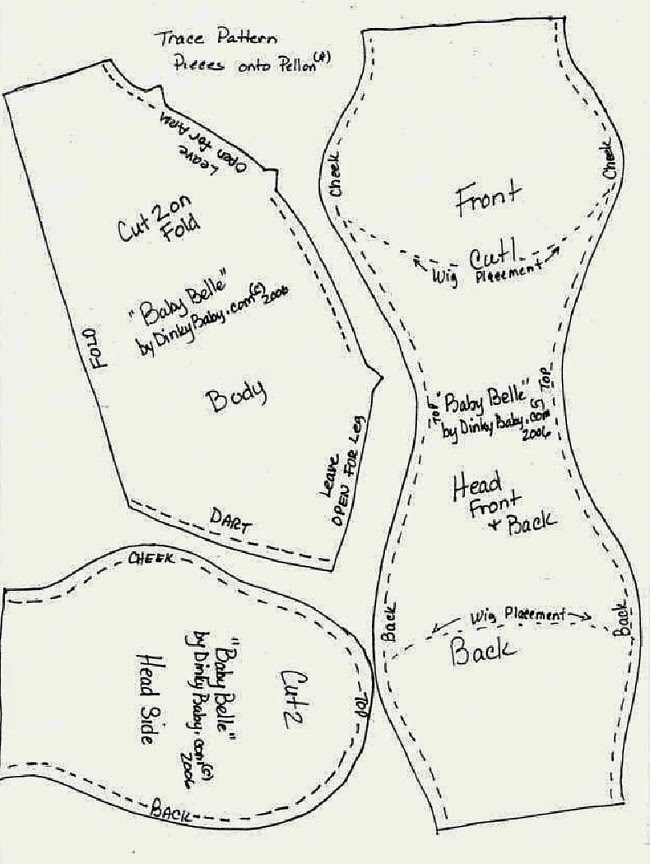 Trace Pattern
Pieces onto Pellon(*)
Leave
Open for ARM
Cut 2 on
Fold
"Baby Belle"
by DinkyBaby.com(c)
2006
FOLD
Body
Leave
OPEN FOR Leg
DART
Cheek
Cheek
Front
Cut 1
Wig Placement
TOP
TOP
"Baby Belle"
by DinkyBaby.com(c)
2006
Head
Front
+ Back
Back
Back
Wig Placement
Back
CHEEK
Cut 2
"Baby Belle"
by DinkyBaby.com(c)
2006
Head Side
TOP
BACK